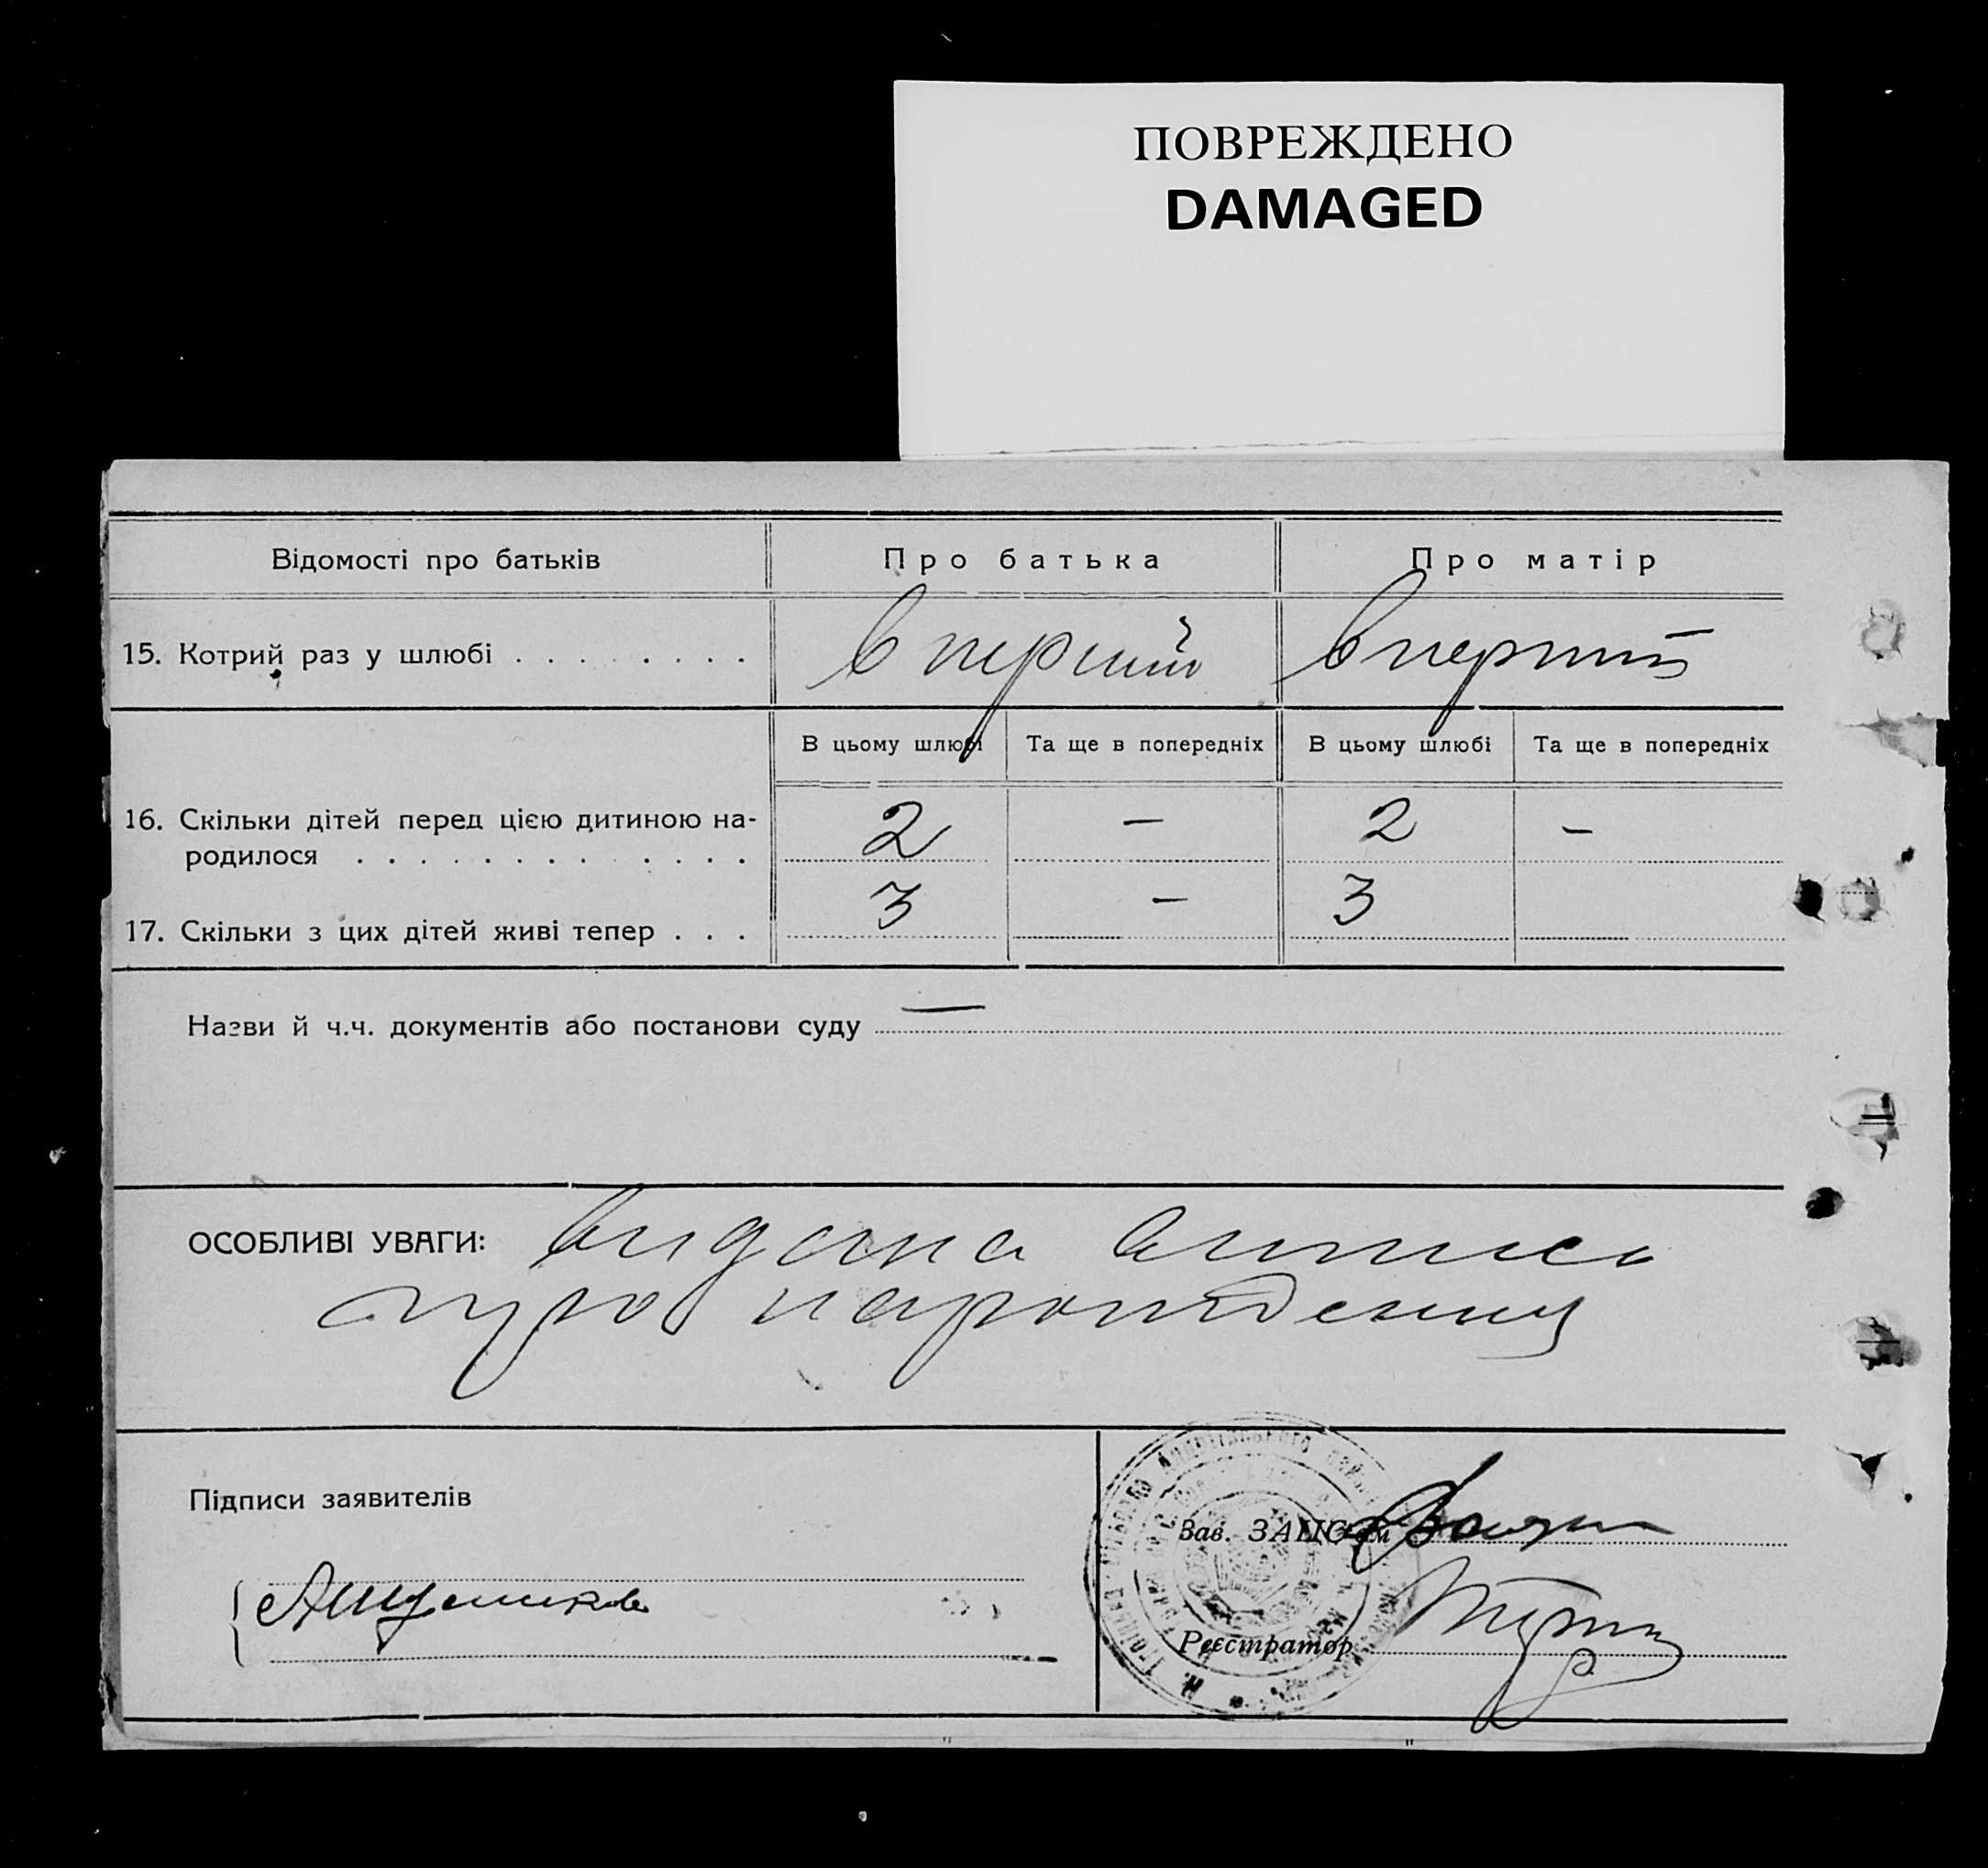 ПОВРЕЖДЕНО
DAMAGED
Відомості про батьків
Про батька
Про матір
15. Котрий раз у шлюбі . . . . . . . .
вперший
вперший
В цьому шлюбі
Та ще в попередніх
В цьому шлюбі
Та ще в попередніх
16. Скільки дітей перед цією дитиною на-
родилося . . . . . . . . . . . .
2
—
2
—
17. Скільки з цих дітей живі тепер . . .
3
—
3
Назви й ч.ч. документів або постанови суду —
ОСОБЛИВІ УВАГИ: видана випись
про народження
Підписи заявителів
Зав. ЗАЦС'ом
Реєстратор